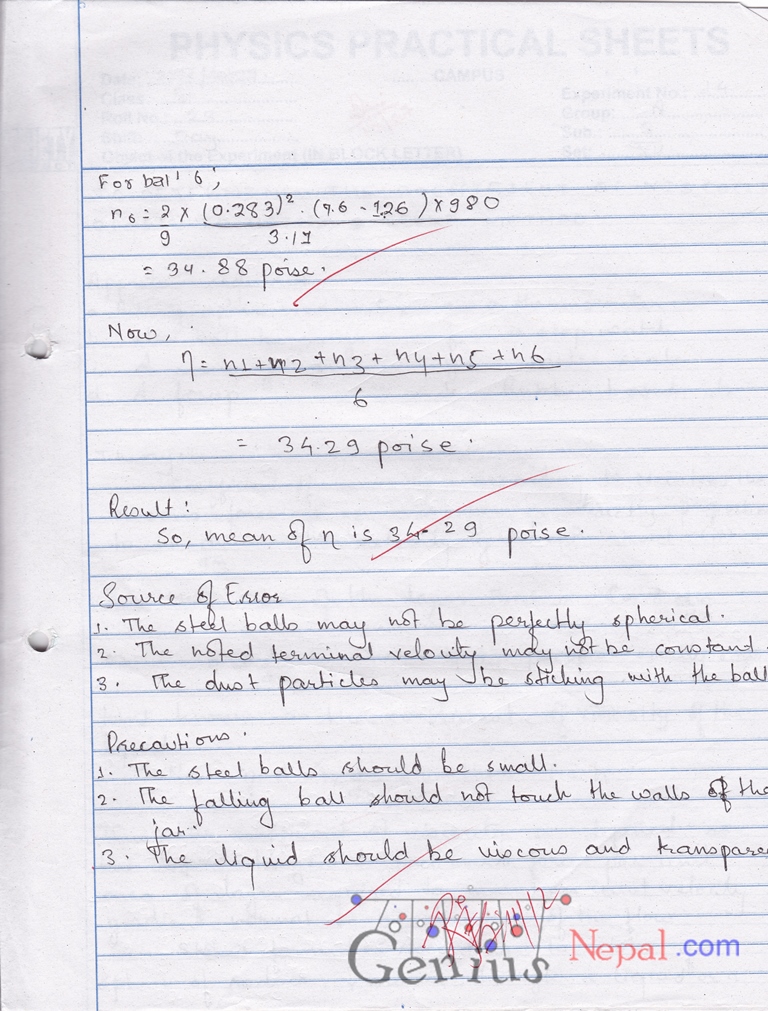 PHYSICS PRACTICAL SHEETS
CAMPUS
Date:
Class
Roll No
Experiment No.:
Group:
Sub
Set:
Object of the Experiment (IN BLOCK LETTER)
For ball '6',
n6 = 2/9 × (0.283)². (7.6 - 1.26) × 980 / 3.17
= 34.88 poise.
Now,
η = n1+n2+n3+n4+n5+n6 / 6
= 34.29 poise.
Result:
So, mean of η is 34.29 poise.
Source of Error
1. The steel balls may not be perfectly spherical.
2. The noted terminal velocity may not be constand.
3. The dust particles may be sticking with the ball
Precautions.
1. The steel balls should be small.
2. The falling ball should not touch the walls of the
jar.
3. The liquid should be viscous and transpare
Genius Nepal.com